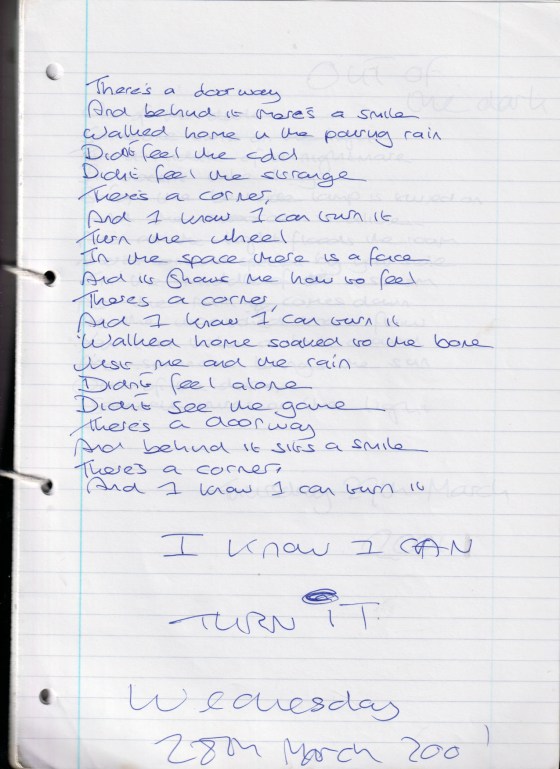 There's a doorway
And behind it there's a smile
Walked home in the pouring rain
Didn't feel the cold
Didn't feel the strange
There's a corner,
And I know I can turn it
Turn the wheel
In the space there is a face
And it shows me how to feel
There's a corner,
And I know I can turn it
Walked home soaked to the bone
Just me and the rain
Didn't feel alone
Didn't see the game
There's a doorway
And behind it sits a smile
There's a corner,
And I know I can turn it
I KNOW I CAN
TURN IT
Wednesday
28th March 2001
Out of
the dark